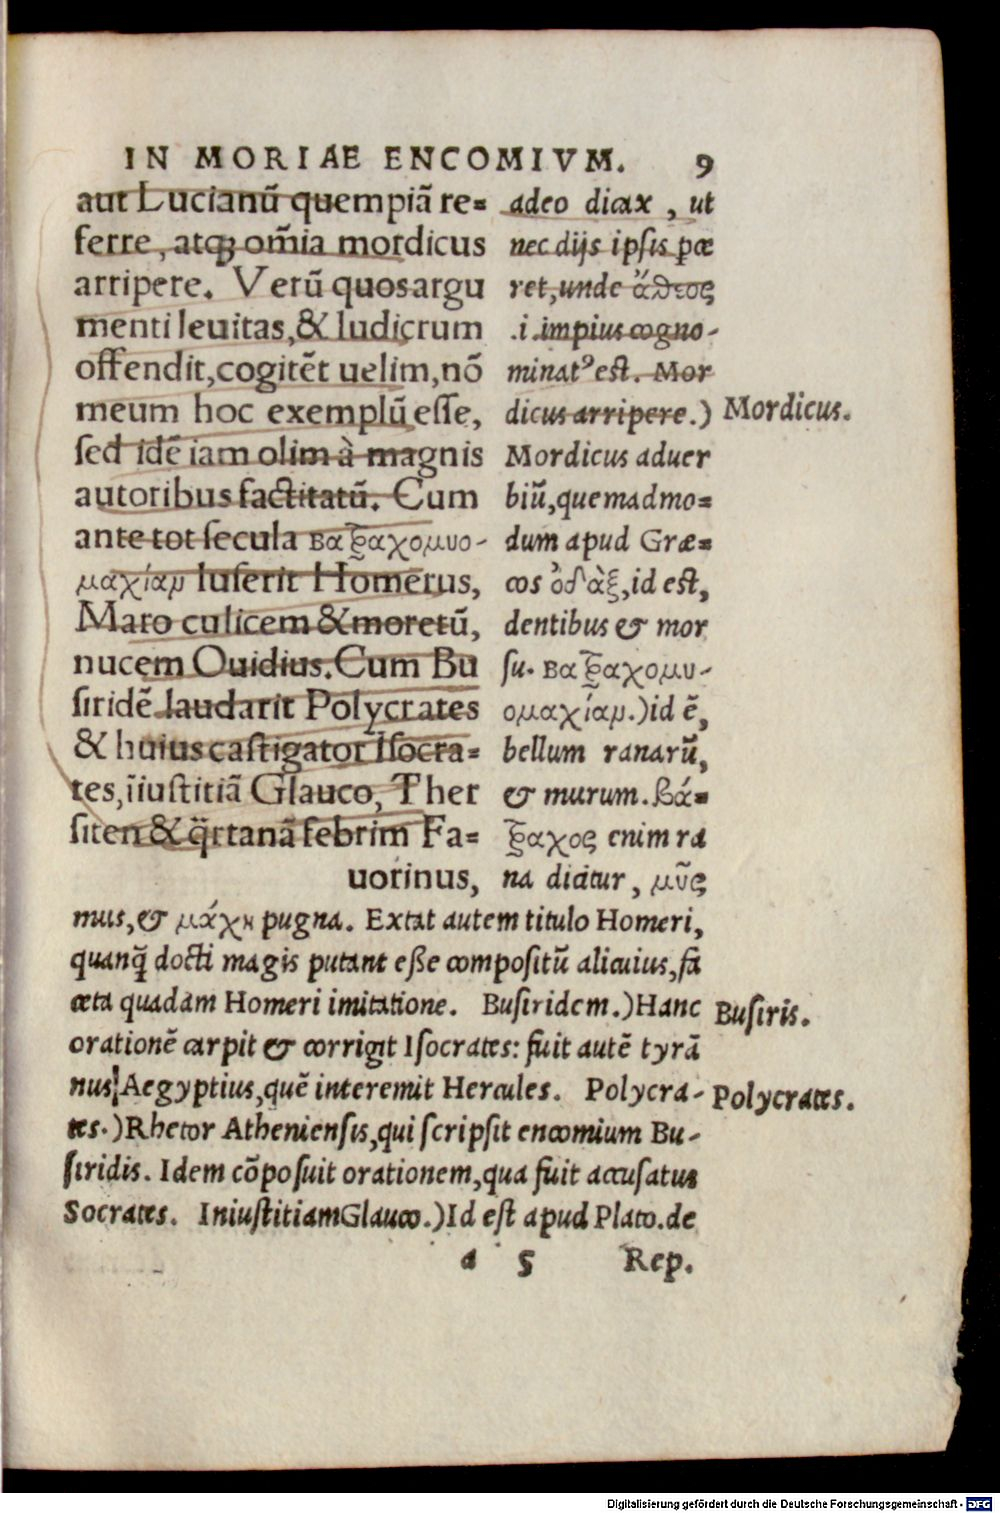 IN MORIAE ENCOMIVM. 9
aut Lucianū quempiā re=
ferre, atqꝫ om̄ia mordicus
arripere. Verū quos argu
menti leuitas, & ludicrum
offendit, cogitēt uelim, nō
meum hoc exemplū esse,
sed idē iam olim à magnis
autoribus factitatū. Cum
ante tot secula βαῤαχομυο-
μαχίαμ luserit Homerus,
Maro culicem & moretū,
nucem Ouidius. Cum Bu
siridē laudarit Polycrates
& huius castigator Isocra=
tes, īiustitiā Glauco, Ther
siten & q̈rtanā febrim Fa=
uorinus,
adeo dicax, ut
nec dijs ipsis pœ
ret, unde ἄθεος
.i. impius cogno-
minatꝰ est. Mor
dicus arripere.)
Mordicus aduer
biū, quemadmo=
dum apud Græ=
cos ὀδὰξ, id est,
dentibus & mor
su. βατραχομυ-
ομαχίαμ.) id ē,
bellum ranarū,
& murum. βά=
τραχος enim ra
na dicitur, μῦς
mus, & μάχη pugna. Extat autem titulo Homeri,
quanq̄ docti magis putant esse compositū alicuius, fa
cta quadam Homeri imitatione. Busiridem.) Hanc
orationē carpit & corrigit Isocrates: fuit autē tyrā
nus Aegyptius, quē interemit Hercules. Polycra-
tes.) Rhetor Atheniensis, qui scripsit encomium Bu-
siridis. Idem cōposuit orationem, qua fuit accusatus
Socrates. Iniustitiam Glauco.) Id est apud Plato. de
a 5 Rep.
Mordicus.
Busiris.
Polycrates.
Digitalisierung gefördert durch die Deutsche Forschungsgemeinschaft - DFG